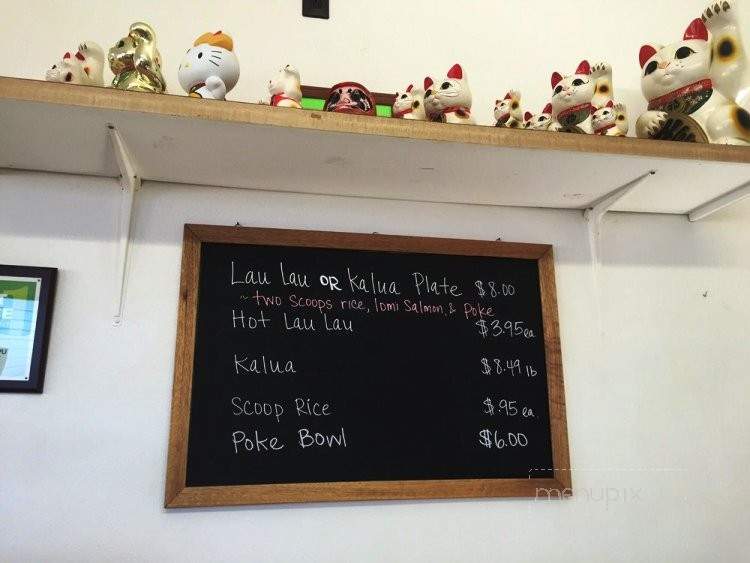 Lau Lau OR Kalua Plate $8.00
~ two scoops rice, lomi Salmon, & Poke
Hot Lau Lau $3.95 ea
Kalua $8.49 lb
Scoop Rice $.95 ea.
Poke Bowl $6.00
menupix